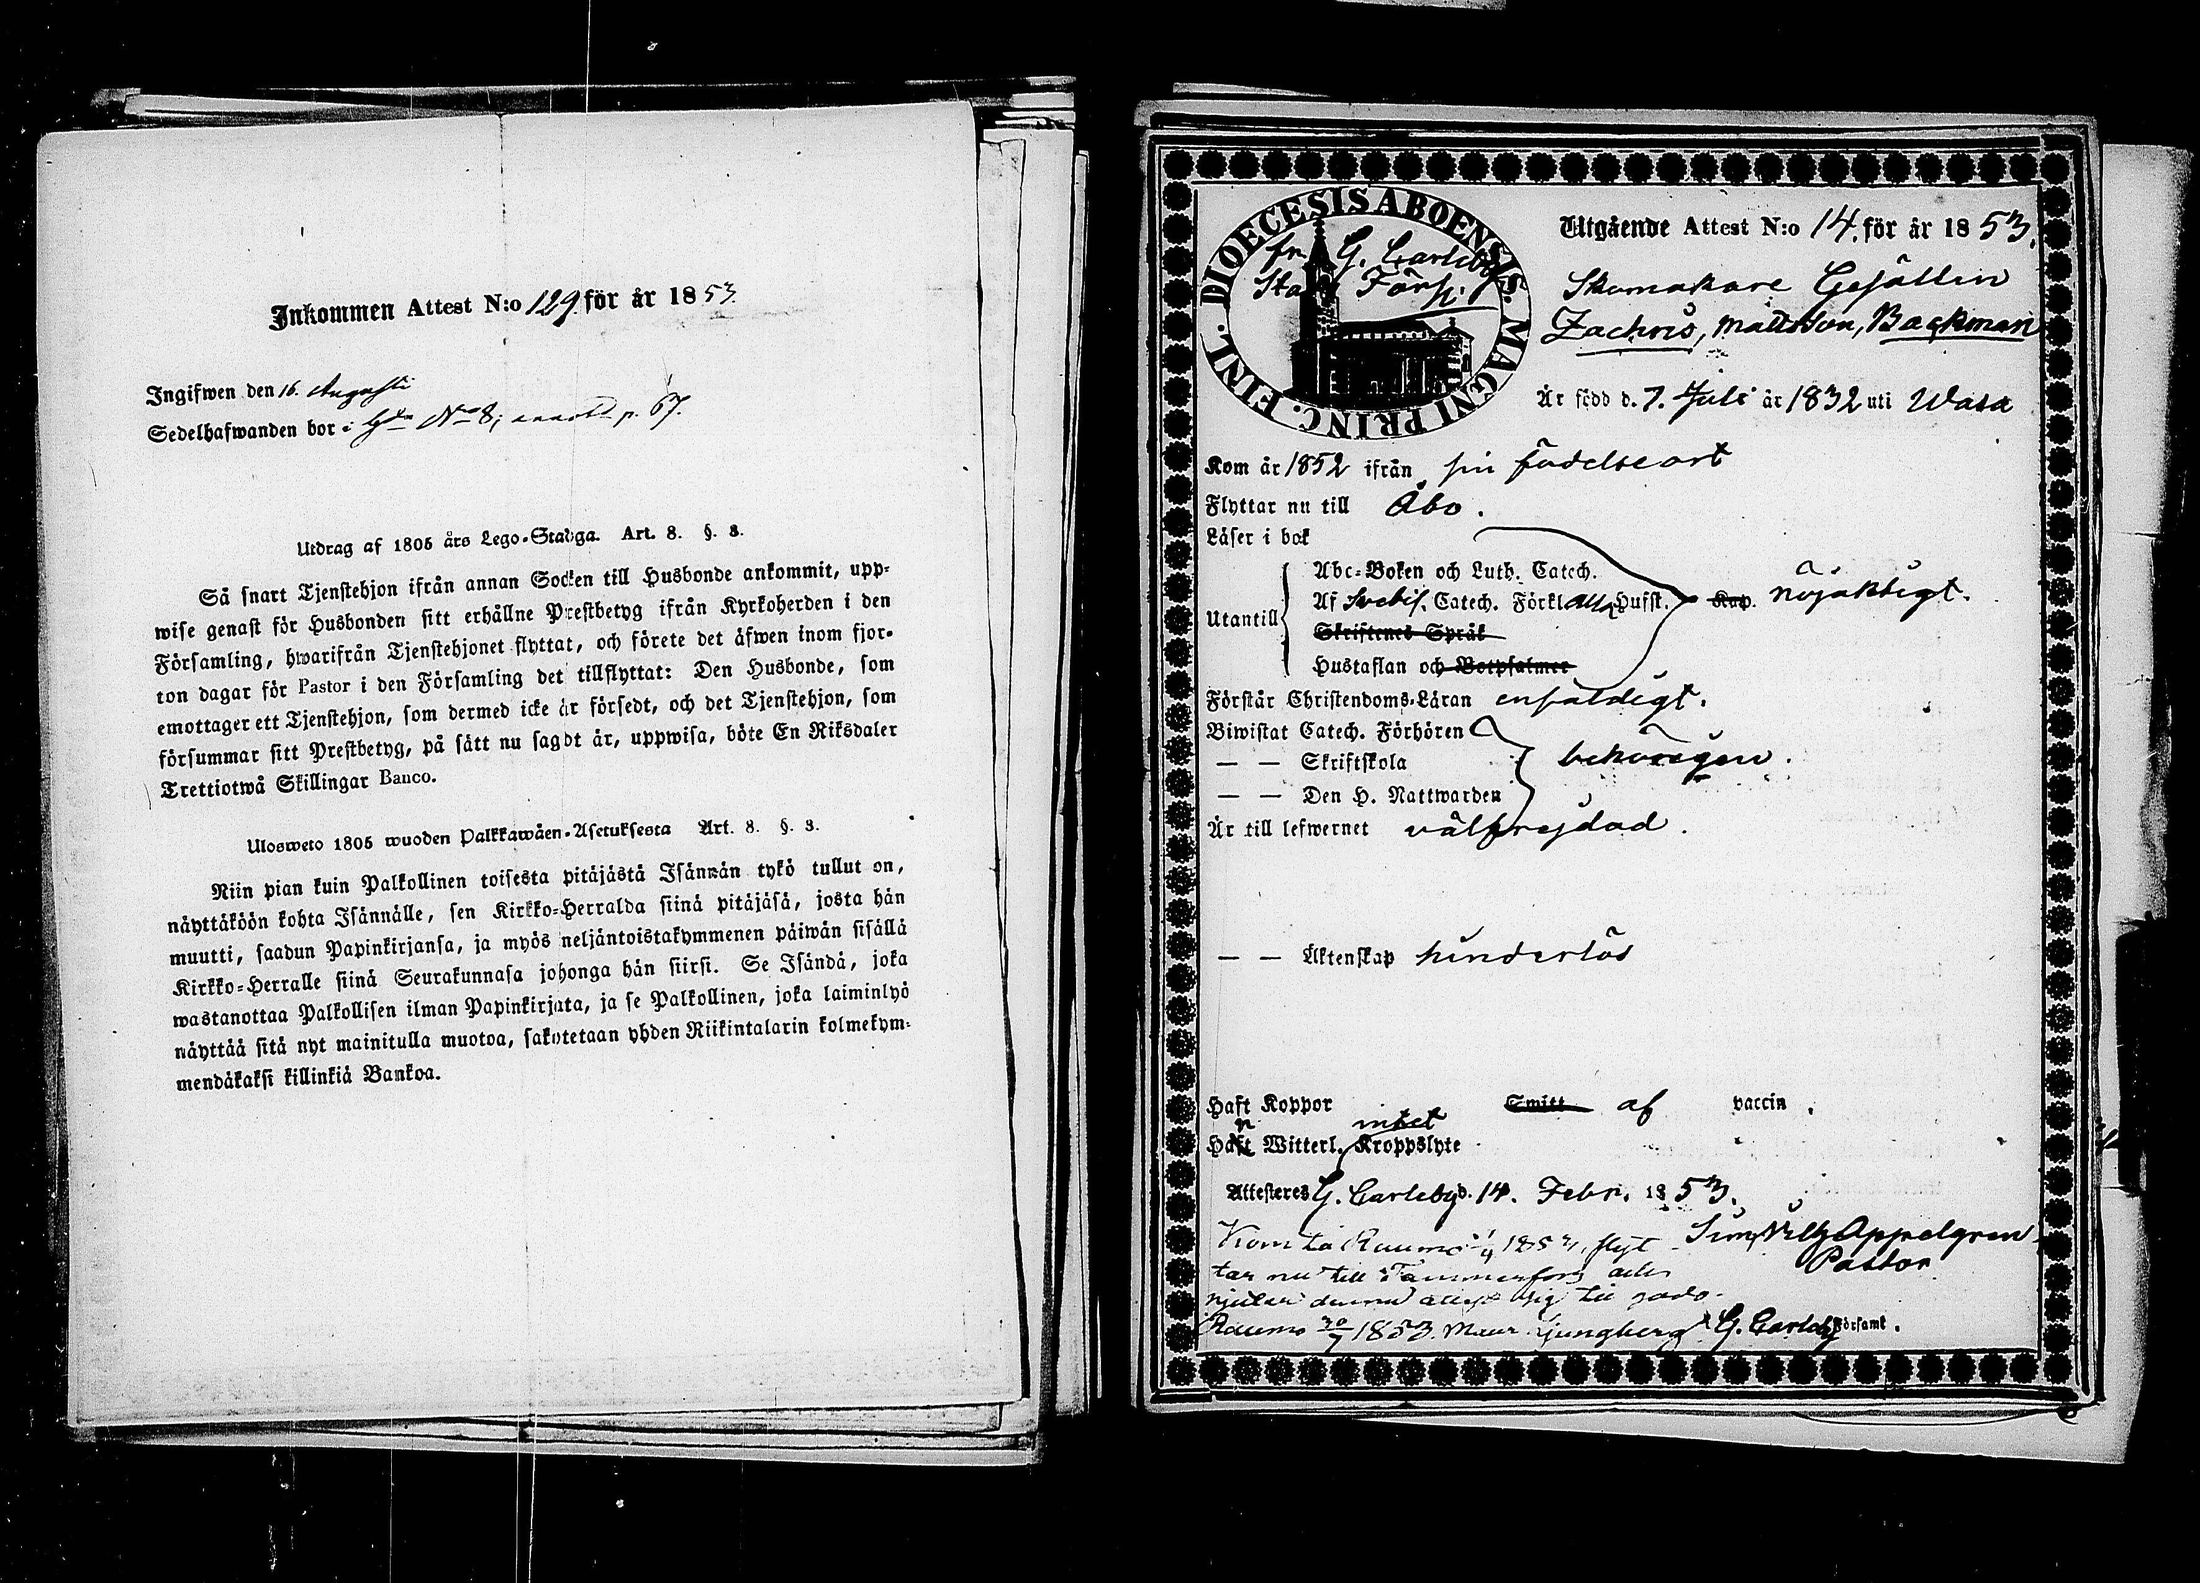 Inkommen Attest N:o 129. för år 1853.
Ingifwen den 16. Augusti
Sedelhafwanden bor i Gård No 8; annot. p. 67.
Utdrag af 1805 års Lego-Stadga. Art. 8. §. 3.
Så snart Tjenstehjon ifrån annan Socken till Husbonde ankommit, upp-
wise genast för Husbonden sitt erhållne Prestbetyg ifrån Kyrkoherden i den
Församling, hwarifrån Tjenstehjonet flyttat, och förete det äfwen inom fjor-
ton dagar för Pastor i den Församling det tillflyttat: Den Husbonde, som
emottager ett Tjenstehjon, som dermed icke är försedt, och det Tjenstehjon, som
försummar sitt Prestbetyg, på sätt nu sagdt är, uppwisa, böte En Riksdaler
Trettiotwå Skillingar Banco.
Ulosweto 1805 wuoden Palkkawäen-Asetuksesta Art. 8. §. 3.
Niin pian kuin Palkollinen toisesta pitäjästä Isännän tykö tullut on,
näyttäköön kohta Isännälle, sen Kirkko-Herralda siinä pitäjäsä, josta hän
muutti, saadun Papinkirjansa, ja myös neljäntoistakymmenen päiwän sisällä
Kirkko-Herralle siinä Seurakunnasa johonga hän siirsi. Se Isändä, joka
wastanottaa Palkollisen ilman Papinkirjata, ja se Palkollinen, joka laiminlyö
näyttää sitä nyt mainitulla muotoa, sakotetaan yhden Riikintalarin kolmekym-
mendäkaksi killinkiä Bankoa.
DIOECESIS ABOENSIS. MAGNI PRINC. FINL.
fr. G. Carleby
Stads Förs.
Utgående Attest N:o 14. för år 1853.
Skomakare Gesällen
Zachris, Mattsson, Backman
Är född d. 7. Juli år 1832 uti Wasa
Kom år 1852 ifrån sin födelseort
Flyttar nu till Åbo.
Läser i bok
Abc-Boken och Luth. Catech.
Utantill Af Svebil. Catech. Förkl. alla Hufst. Kap. nöjaktigt.
Skriftenes Språk
Hustaflan och Botpsalmer
Förstår Christendoms-Läran enfaldigt.
Biwistat Catech. Förhören
— — Skriftskola behörigen.
— — Den H. Nattwarden
Är till lefwernet välfrejdad.
— — Äktenskap hinderlös
Haft Koppor Smitt af vaccin.
intet
Haft Witterl. Kroppslyte
Attesteres G. Carleby d. 14. Febr. 1853.
Sim. Wilh. Appelgren
Pastor
Kom till Raumo 1/4 1853, flyt-
tar nu till Tammerfors och
njuter denna attest sig till godo.
Raumo 30/7 1853. Maur. Ljungberg
G. Carleby Församl.